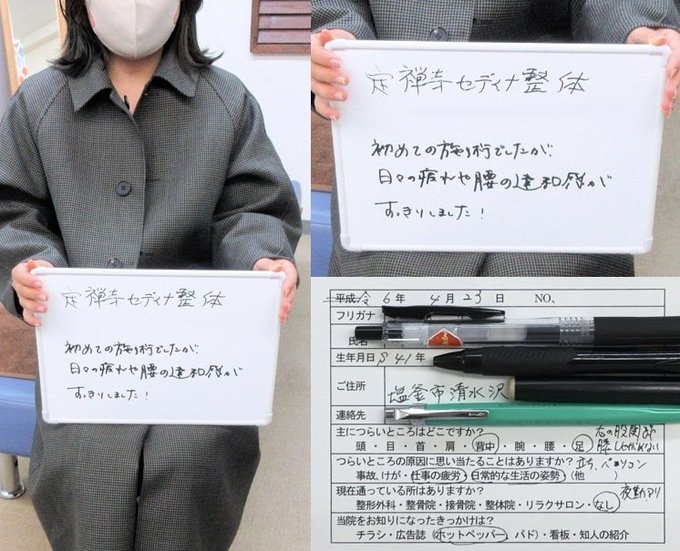 定禅寺セディナ整体
初めての施術でしたが、
日々の疲れや腰の違和感が
すっきりしました!
定禅寺セディナ整体
初めての施術でしたが、
日々の疲れや腰の違和感が
すっきりしました!
平成 令 6年 4月 23日 NO.
フリガナ
氏名
生年月日 S41年
ご住所 塩釜市清水沢
連絡先
主につらいところはどこですか? 右の股関節
頭・目・首・肩・背中・腕・腰・足
つらいところの原因に思い当たることはありますか? 立ち、パソコン
事故、けが・仕事の疲労・日常的な生活の姿勢・(他 )
現在通っている所はありますか? 夜勤アリ
整形外科・整骨院・接骨院・整体院・リラクサロン・なし
当院をお知りになったきっかけは?
チラシ・広告誌(ホットペッパー、パド)・看板・知人の紹介